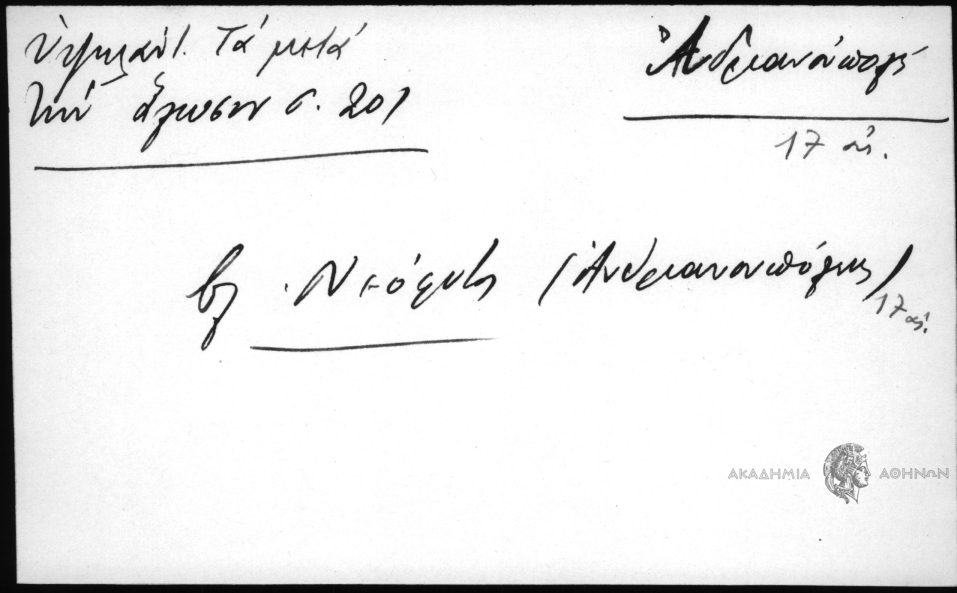 Ὑψηλάντ. Τά μετά
τήν ἅλωσιν σ. 201
Ἀνδριανούπολις
17 αἰ.
βλ. Νεόφυτος (Ἀνδριανουπόλεως)
17 αἰ.
ΑΚΑΔΗΜΙΑ ΑΘΗΝΩΝ